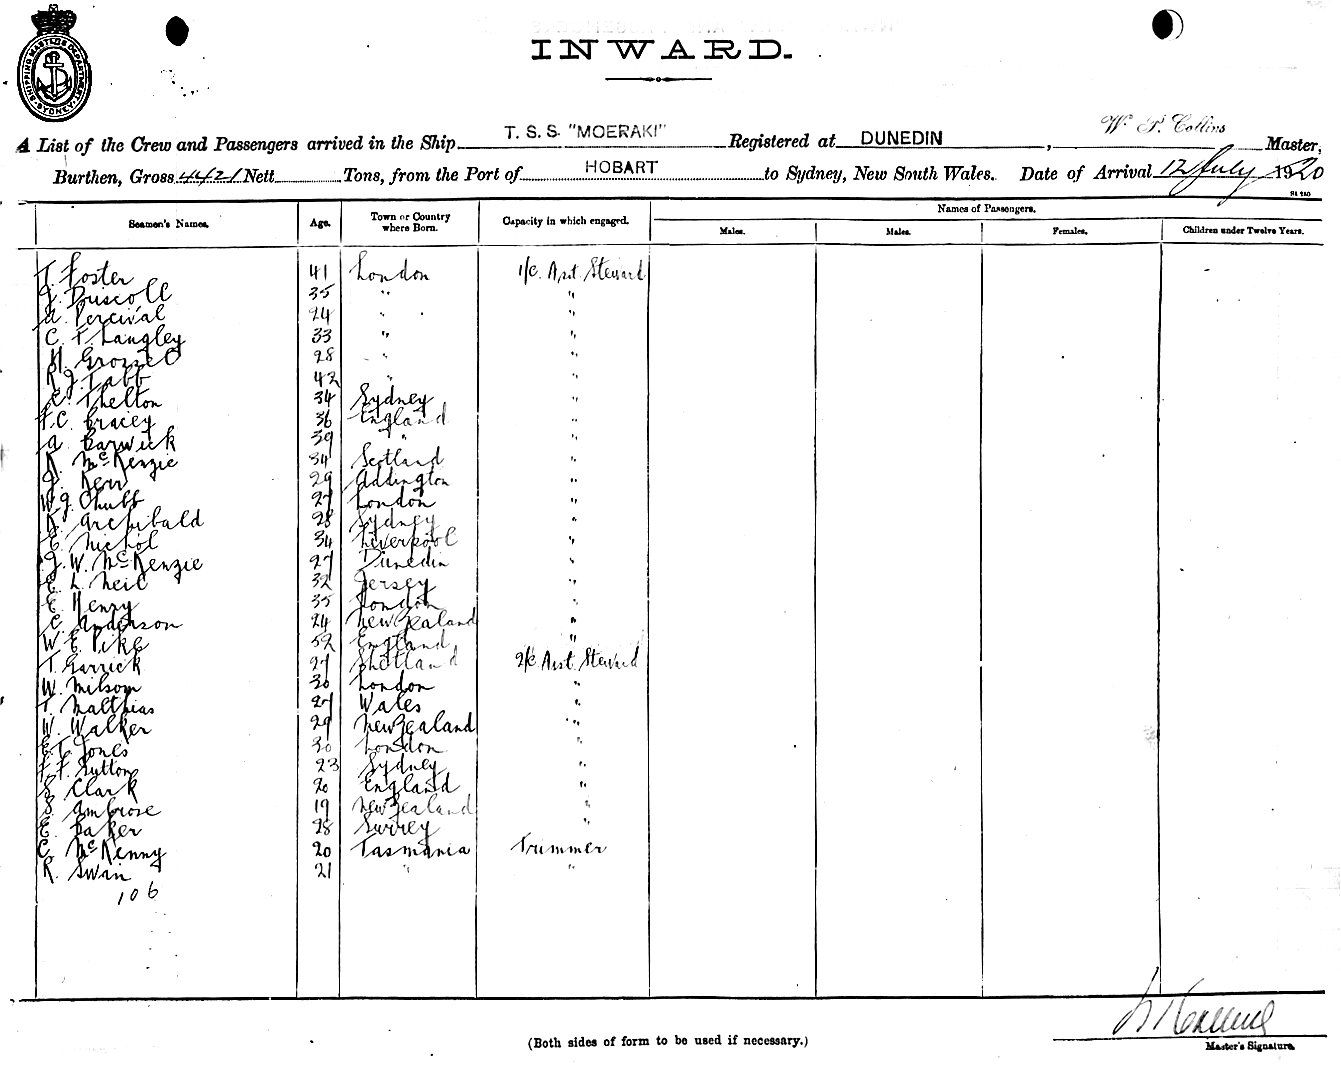 SHIPPING MASTER'S DEPARTMENT SYDNEY
INWARD.
A List of the Crew and Passengers arrived in the Ship T. S. S. "MOERAKI" Registered at DUNEDIN, W. P. Collins Master,
Burthen, Gross 4421 Nett Tons, from the Port of HOBART to Sydney, New South Wales. Date of Arrival 12 July 1920
Seamen's Names. Age. Town or Country where Born. Capacity in which engaged. Names of Passengers.
Males. Males. Females. Children under Twelve Years.
T. Foster 41 London 1/c. Asst. Steward
J. Driscoll 35 " "
A. Percival 24 " "
C. T. Langley 33 " "
H. 28 " "
R. J. Tabb 42 " "
C. Thelton 34 Sydney "
F. C. Gracey 36 England "
A. Barwick 39 " "
K. McKenzie 34 Scotland "
J. Kerr 29 Addington "
W. J. Chubb 27 London "
K. Archibald 28 Sydney "
E. Nichol 34 Liverpool "
J. W. McKenzie 27 Dunedin "
E. L. Neil 32 Jersey "
E. Henry 35 London "
C. Anderson 24 New Zealand "
W. E. Pike 52 England "
T. Garrick 27 Shetland 2/c Asst. Steward
W. Milsom 30 London "
T. Matthias 27 Wales "
W. Walker 29 New Zealand "
E. T. Jones 30 London "
F. F. Sutton 23 Sydney "
S. Clark 20 England "
S. Ambrose 19 New Zealand "
E. Baker 28 Surrey "
C. McKenny 20 Tasmania Trimmer
R. Swan 21 " "
106
(Both sides of form to be used if necessary.)
Master's Signature.